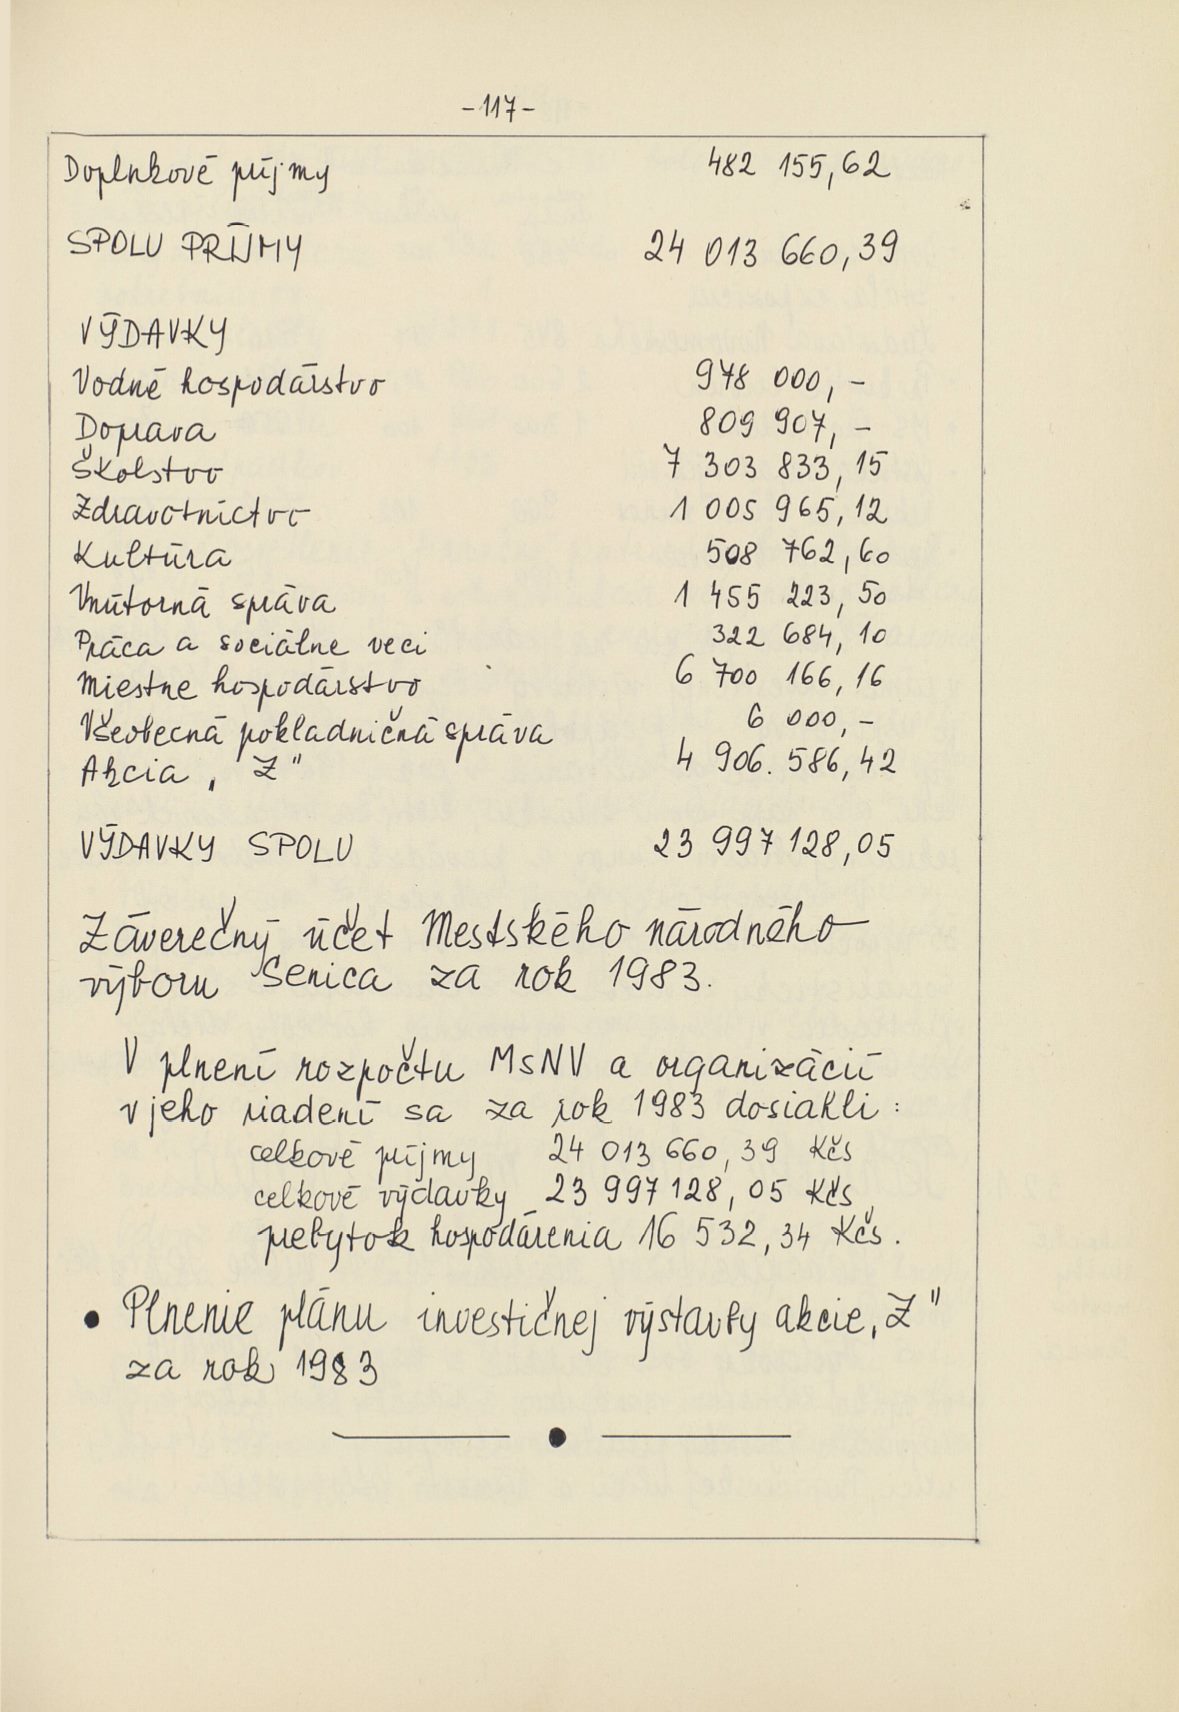 -117-
Doplnkové príjmy 482 155,62
SPOLU PRÍJMY 24 013 660,39
VÝDAVKY
Vodné hospodárstvo 978 000,-
Doprava 809 907,-
Školstvo 7 303 833,15
Zdravotníctvo 1 005 965,12
Kultúra 508 762,60
Vnútorná správa 1 455 223,50
Práca a sociálne veci 322 684,10
Miestne hospodárstvo 6 700 166,16
Všeobecná pokladničná správa 6 000,-
Akcia „Z" 4 906.586,42
VÝDAVKY SPOLU 23 997 128,05
Záverečný účet Mestského národného
výboru Senica za rok 1983.
V plnení rozpočtu MsNV a organizácií
v jeho riadení sa za rok 1983 dosiahli:
celkové príjmy 24 013 660,39 Kčs
celkové výdavky 23 997 128,05 Kčs
prebytok hospodárenia 16 532,34 Kčs.
• Plnenie plánu investičnej výstavby akcie „Z"
za rok 1983